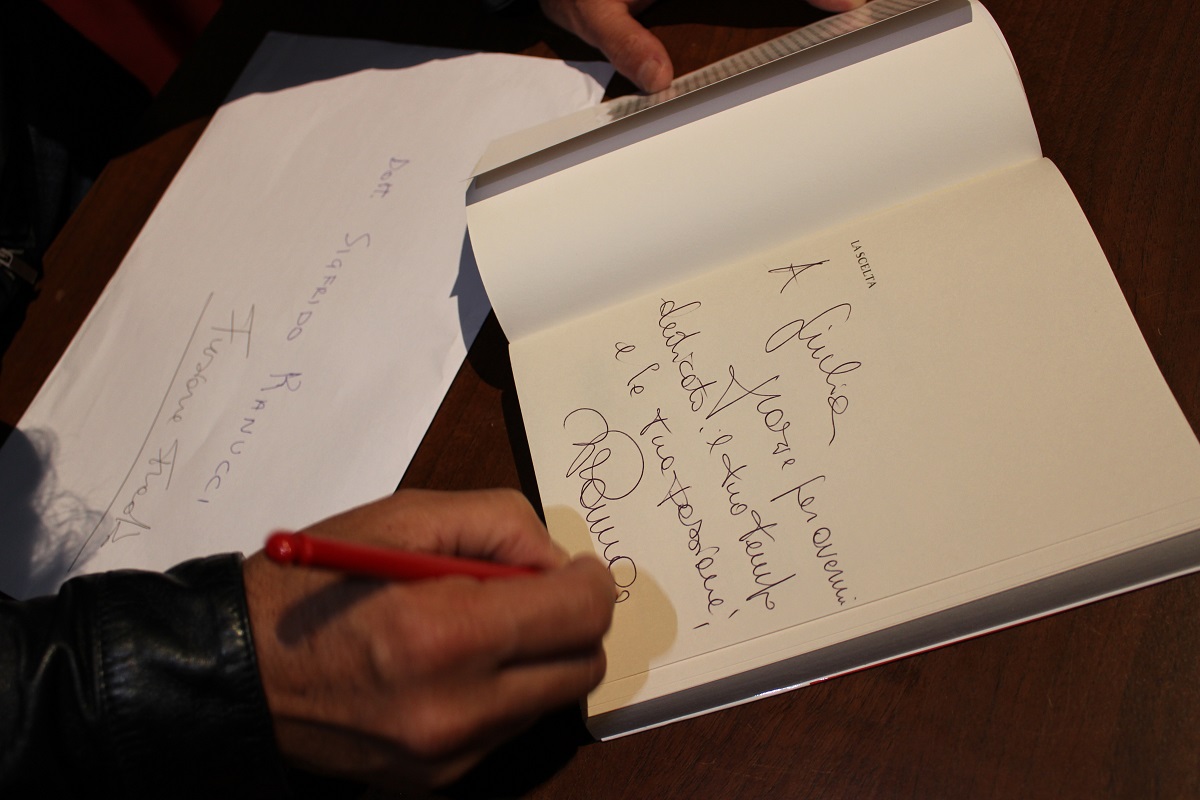 Dott. SIGFRIDO RANUCCI
LA SCELTA
A Giulia
Grazie per avermi
dedicato il tuo tempo
e le tue passioni